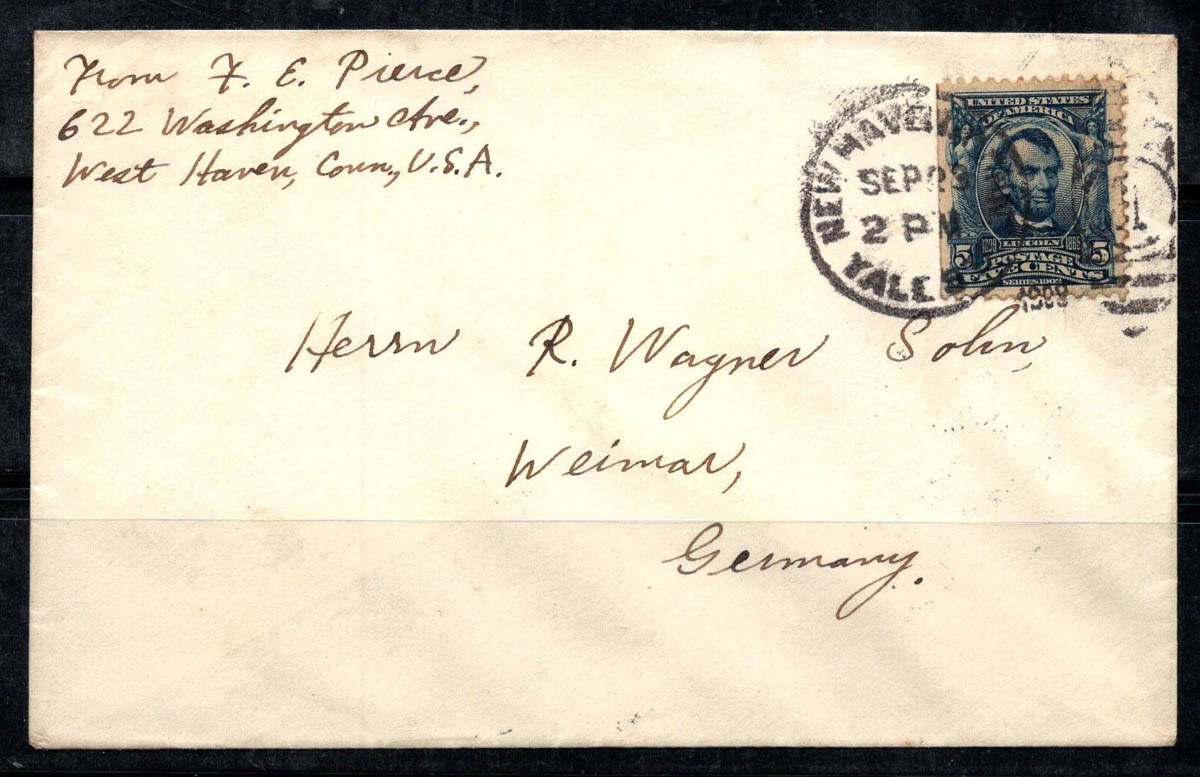 From F. E. Pierce,
622 Washington Ave.,
West Haven, Conn., U.S.A.
NEW HAVEN
SEP 23
2 PM
YALE
1908
UNITED STATES
OF AMERICA
1809 LINCOLN 1865
5 POSTAGE 5
FIVE CENTS
SERIES 1902
1
Herrn R. Wagner Sohn,
Weimar,
Germany.